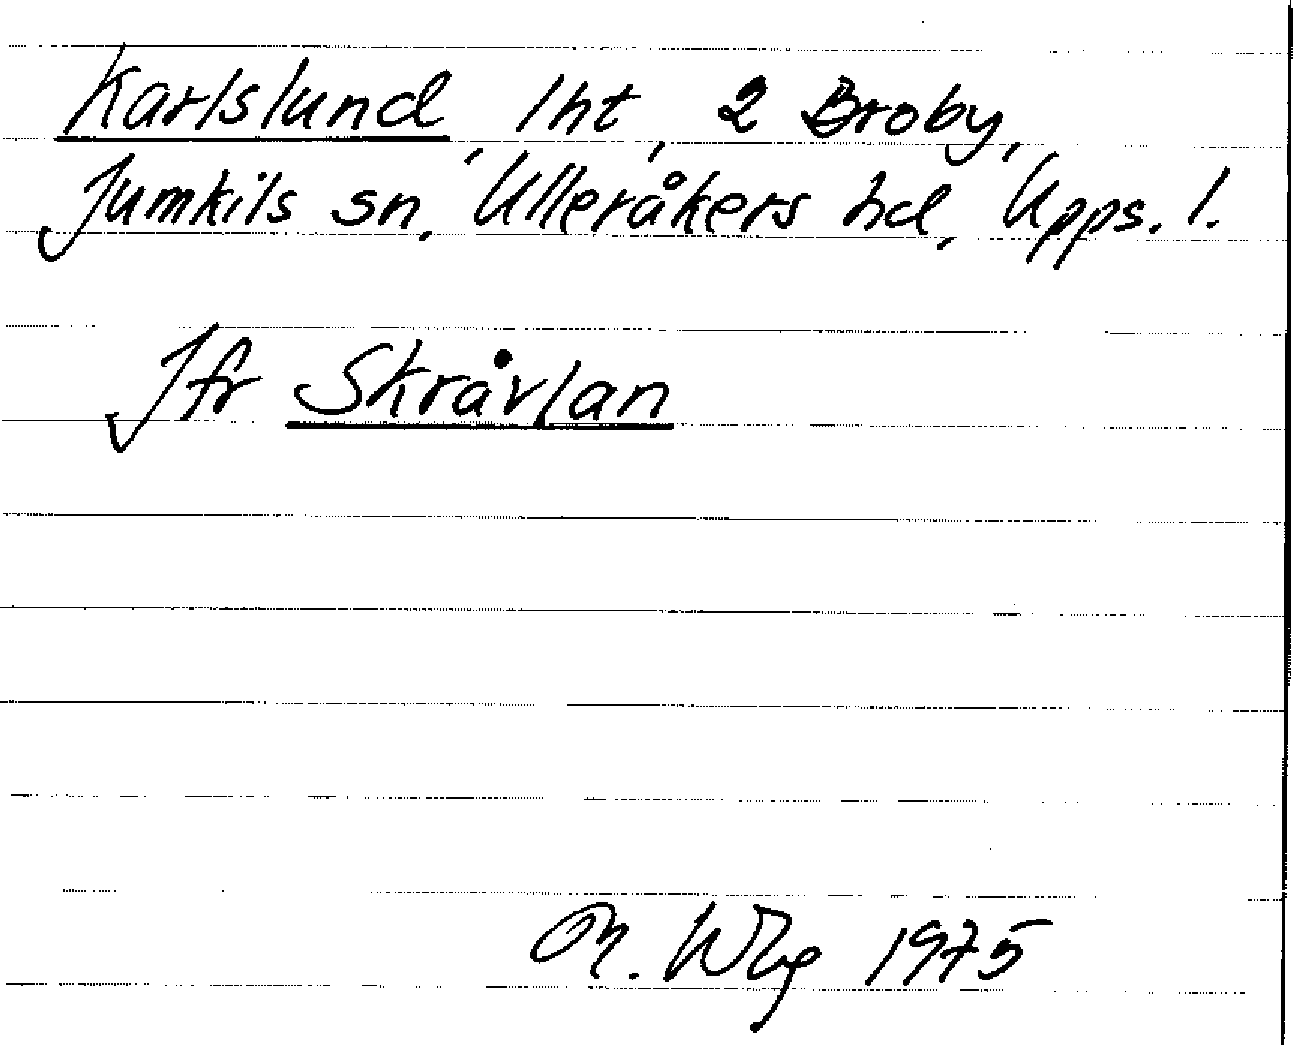 Karlslund, lht, 2 Broby,
Jumkils sn, Ulleråkers hd, Upps. l.
Jfr Skråvlan
M. Wbg 1975